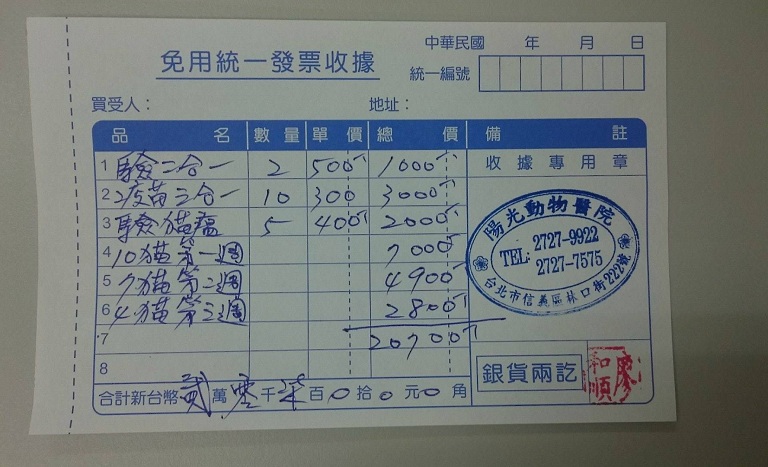 中華民國 年 月 日
免用統一發票收據
統一編號
買受人： 地址：
品名 數量 單價 總價 備註
1 驗二合一 2 500 1000
收據專用章
2 疫苗三合一 10 300 3000
3 驗貓瘟 5 400 2000
4 10貓第一週 7000
5 7貓第二週 4900
6 4貓第三週 2800
7 20700
8
陽光動物醫院
TEL: 2727-9922
2727-7575
台北市信義區林口街222號
銀貨兩訖
合計新台幣 貳 萬 零 千 柒 百 0 拾 0 元 0 角